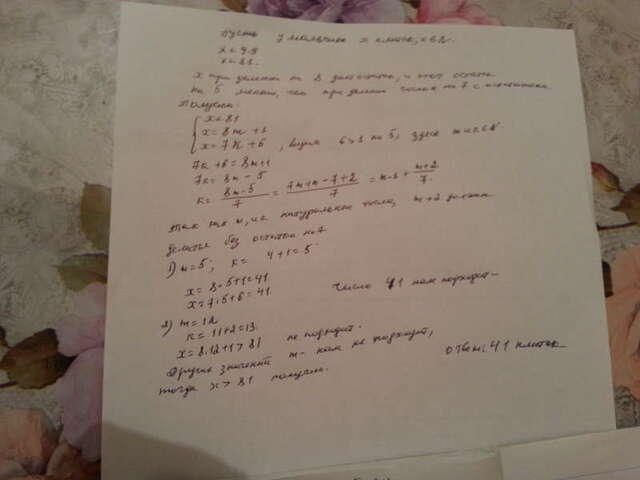 Пусть у мальчика x клеток, x∈N.
x < 9·9
x < 81.
x при делении на 8 даёт остаток, и этот остаток
на 5 меньше, чем при делении числа x на 7 с остатком
Получим:
{ x < 81
x = 8m + 1
x = 7k + 6, 6 > 1 на 5, здесь m и k ∈ N
7k + 6 = 8m + 1
7k = 8m - 5
k = (8m - 5)/7 = (7m + m - 7 + 2)/7 = m - 1 + (m + 2)/7.
Так как натуральные числа, m + 2 должно
делится без остатка на 7
1) m = 5; k = 4 + 1 = 5
x = 8·5 + 1 = 41
x = 7·5 + 6 = 41. Число 41 нам подходит
2) m = 12
k = 11 + 2 = 13.
x = 8·12 + 1 > 81 не подходит.
Другие значения m нам не подходят,
тогда x > 81 получим.
Ответ: 41 клеток